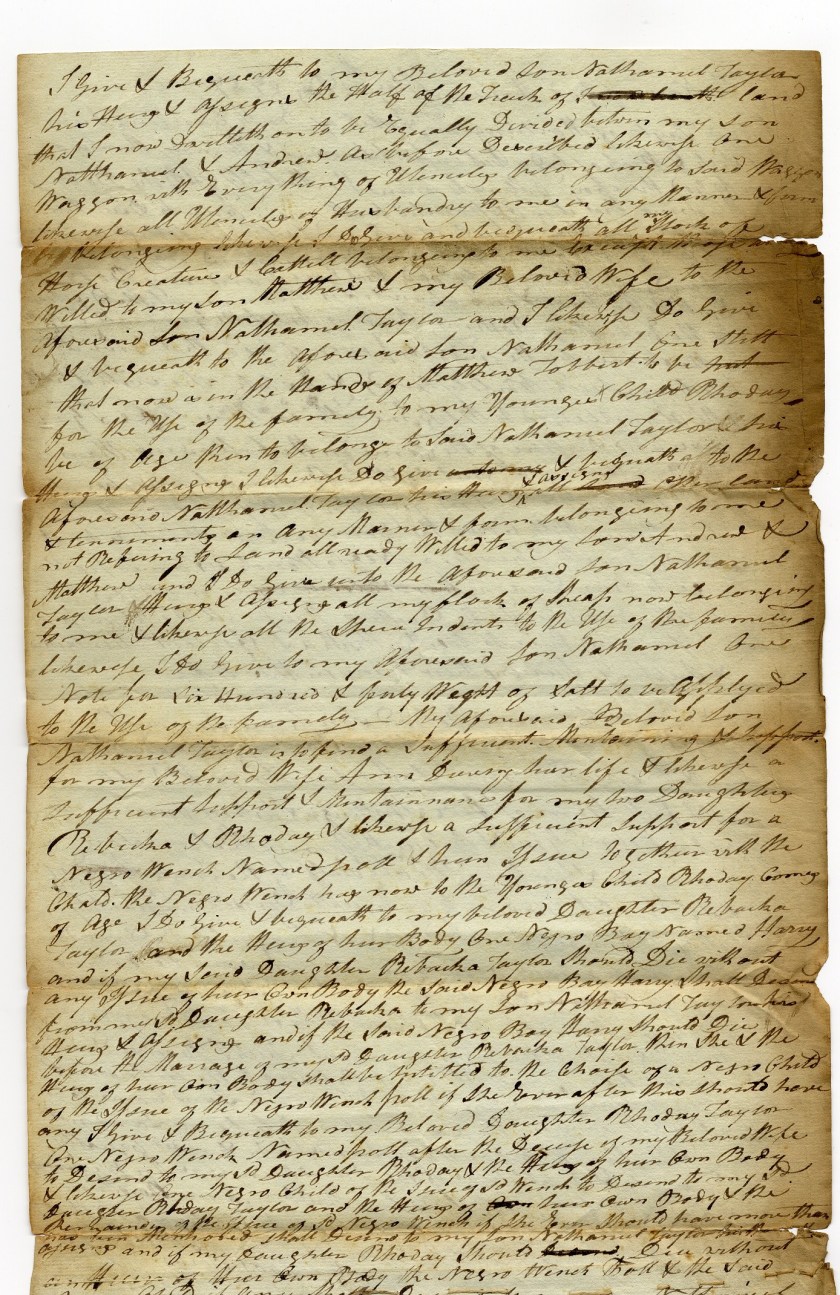 I Give & Bequeath to my Beloved Son Nathaniel Taylor
his Heirs & Assigns the Half of the Track of land
that I now Dwelleth on to be Equally Divided betwin my Son
Nathaniel & Andrew as before Described likewise One
Waggon with Every thing of Utencils belonging to said Waggon
likewise all Utencils of Husbandry to me in any Manner & form
belonging likewise I Do Give and bequeath all my Stock of
Horse Creatures & Cattell belonging to me Except
Willed to my Son Matthew & my Beloved Wife to the
Aforesaid Son Nathaniel Taylor and I likewise Do Give
& bequeath to the Aforesaid Son Nathaniel One Still
that now is in the Hands of Matthew Tolbert to be
for the Use of the family to my Younges Child Rhoday
be of Age then to belonge to Said Nathaniel Taylor & his
Heirs & Assigns I likewise Do Give & bequeath to the
Aforesaid Nathaniel Taylor his Heirs & assigns all other land
& tennements an Any Manner & form belonging to me
not Refering to Land all ready Willed to my Son Andrew &
Matthew and I Do Give unto the Aforesaid Son Nathaniel
Taylor Heirs & Assigns all my flock of Sheap now belonging
to me & likewise all the to the Use of the families
likewise I Do Give to my Aforesaid Son Nathaniel One
Note for Six Hundred & forty Weght of Salt to be Applyed
to the Use of the family My Aforesaid Beloved Son
Nathaniel Taylor is to find a Sufficient & Support
for my Beloved Wife Ann Duering hur life & likewise a
Sufficient Support & for my two Daughters
Rebacka & Rhoday & likewise a Sufficient Support for a
Negro Wench Named poll & hur Issue together with the
Chatd. the Negro Wench has now to the Younges Child Rhoday Comes
of Age I Do Give & bequeath to my beloved Daughter Rebacka
Taylor and the Heirs of hur Body One Negro Bay Named Harry
and if my Said Daughter Rebacka Taylor Should Die without
any Issue of hur Own Body the Said Negro Bay Harry Shall Desend
from my Sd Daughter Rebacka to my Son Nathaniel Taylor his
Heirs & Assigns and if the Said Negro Bay Harry Should Die
before the Marrage of my Sd Daughter Rebacka Taylor then She & the
Heirs of hur Own Body Shall be Intitled to the Choise of a Negro Child
of the Issue of the Negro Wench poll if She Ever after this Should have
any I Give & Bequeath to my Beloved Daughter Rhoday Taylor
One Negro Wench Named poll after the Decese of my Beloved Wife
to Desend to my Sd Daughter Rhoday & the Heirs of hur Own Body
& likewise one Negro Child of the Issue of Sd Wench to Desend to my Sd
Daughter Rhoday Taylor and the Heirs of hur Own Body & the
Remainder of the Issue of Sd Negro Wench if She Ever Should have more than
has bin Mentioned Shall Desend to my Son Nathaniel Taylor
assigns and if my Daughter Rhoday Should Die without
of Hur Own Body the Negro Wench Poll & the Said